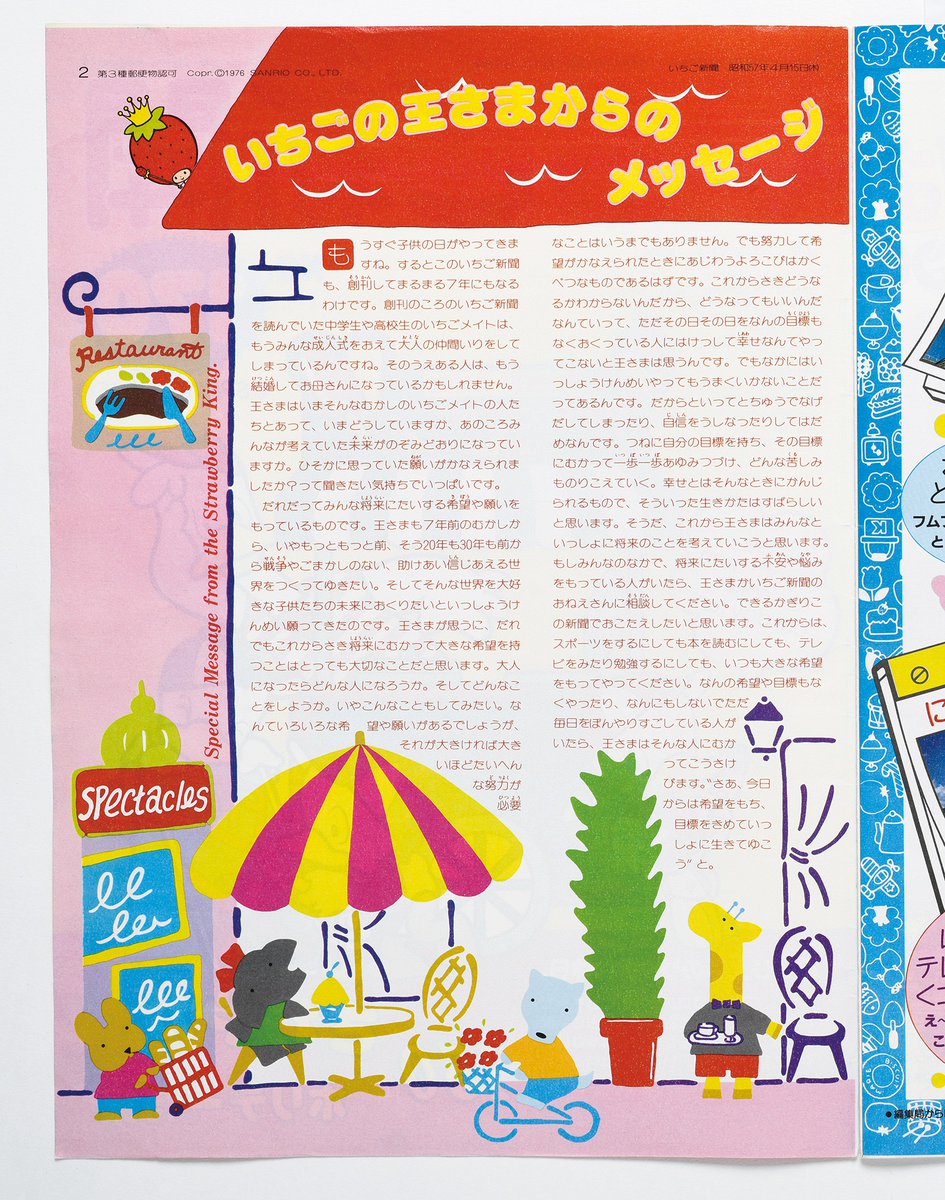 2 第3種郵便物認可 Copr.©1976 SANRIO CO., LTD.
いちご新聞 昭和57年4月15日(木)
いちごの王さまからの
メッセージ
もうすぐ子供の日がやってきま
すね。するとこのいちご新聞
も、創刊してまるまる7年にもなる
わけです。創刊のころのいちご新聞
を読んでいた中学生や高校生のいちごメイトは、
もうみんな成人式をおえて大人の仲間いりをして
しまっているんですね。そのうえある人は、もう
結婚してお母さんになっているかもしれません。
王さまはいまそんなむかしのいちごメイトの人た
ちとあって、いまどうしていますか、あのころみ
んなが考えていた未来がのぞみどおりになってい
ますか。ひそかに思っていた願いがかなえられま
したか?って聞きたい気持ちでいっぱいです。
だれだってみんな将来にたいする希望や願いを
もっているものです。王さまも7年前のむかしか
ら、いやもっともっと前、そう20年も30年も前か
ら戦争やごまかしのない、助けあい信じあえる世
界をつくってゆきたい。そしてそんな世界を大好
きな子供たちの未来におくりたいといっしょうけ
んめい願ってきたのです。王さまが思うに、だれ
でもこれからさき将来にむかって大きな希望を持
つことはとっても大切なことだと思います。大人
になったらどんな人になろうか。そしてどんなこ
とをしようか。いやこんなこともしてみたい。な
んていろいろな希望や願いがあるでしょうが、
それが大きければ大き
いほどたいへん
な努力が
必要
なことはいうまでもありません。でも努力して希
望がかなえられたときにあじわうよろこびはかく
べつなものであるはずです。これからさきどうな
るかわからないんだから、どうなってもいいんだ
なんていって、ただその日その日をなんの目標も
なくおくっている人にはけっして幸せなんてやっ
てこないと王さまは思うんです。でもなかにはい
っしょうけんめいやってもうまくいかないことだ
ってあるんです。だからといってとちゅうでなげ
だしてしまったり、自信をうしなったりしてはだ
めなんです。つねに自分の目標を持ち、その目標
にむかって一歩一歩あゆみつづけ、どんな苦しみ
ものりこえていく。幸せとはそんなときにかんじ
られるもので、そういった生きかたはすばらしい
と思います。そうだ、これから王さまはみんなと
いっしょに将来のことを考えていこうと思います。
もしみんなのなかで、将来にたいする不安や悩み
をもっている人がいたら、王さまかいちご新聞の
おねえさんに相談してください。できるかぎりこ
の新聞でおこたえしたいと思います。これからは
スポーツをするにしても本を読むにしても、テレ
ビをみたり勉強するにしても、いつも大きな希望
をもってやってください。なんの希望や目標もな
くやったり、なんにもしないでただ
毎日をぼんやりすごしている人が
いたら、王さまはそんな人にむか
ってこうさけ
びます。“さあ、今日
からは希望をもち、
目標をきめていっ
しょに生きてゆこ
う”と。
Restaurant
Special Message from the Strawberry King.
Spectacles
●編集局から